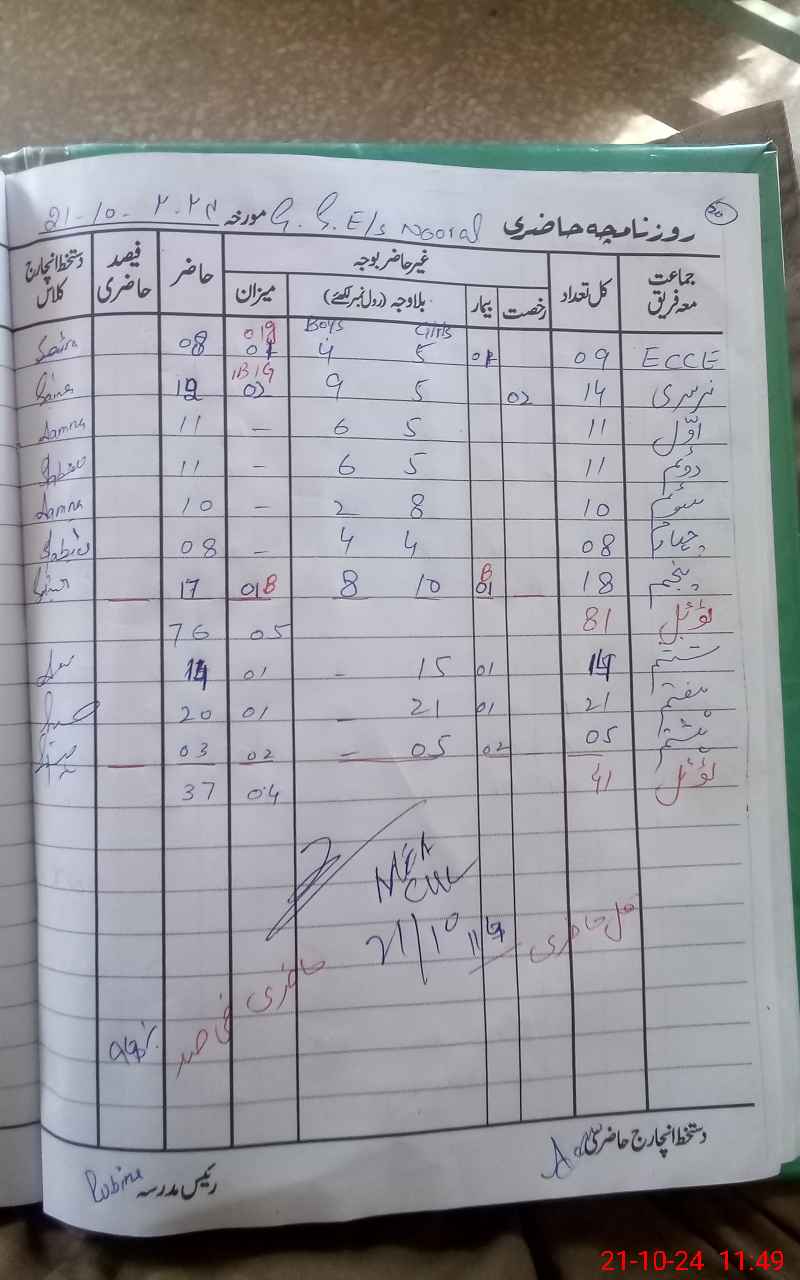 روزنامچہ حاضری G. G. E/s Nooral مورخہ 21-10-۲۰۲۴
جماعت معہ فریق کل تعداد غیر حاضر بوجہ حاضر فیصد حاضری دستخط انچارج کلاس
رخصت بیمار بلاوجہ (رول نمبر لکھئے) میزان
Boys Girls
ECCE 09 01 5 4 01 01G 08 Saira
نرسری 14 02 5 9 02 1B1G 12 Saira
اوّل 11 5 6 – 11 Aamna
دوئم 11 5 6 – 11
سوئم 10 8 2 – 10 Aamna
چہارم 08 4 4 – 08
پنجم 18 B 01 10 8 01B 17
ٹوٹل 81 05 76
ششم 01 15 – 01 14
ہفتم 21 01 21 – 01 20
ہشتم 05 02 05 – 02 03
ٹوٹل 41 04 37
MEA
21/10
کل حاضری
حاضری فی صد
دستخط انچارج حاضری
رئیس مدرسہ Rubina
21-10-24 11:49